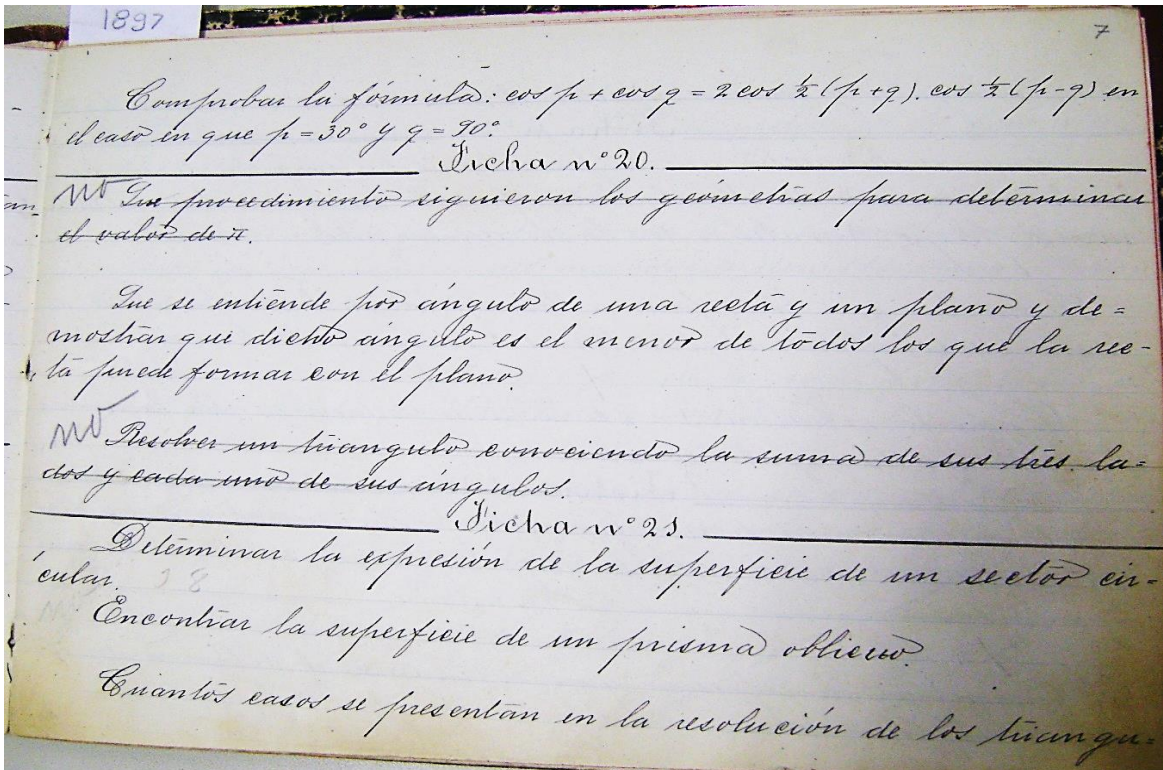 1897
7
Comprobar la fórmula: cos p + cos q = 2 cos ½ (p+q). cos ½ (p-q) en
el caso en que p = 30° y q = 90°.
Ficha nº 20.
no Que procedimiento siguieron los geómetras para determinar
el valor de π.
Que se entiende por ángulo de una recta y un plano y de=
mostrar que dicho ángulo es el menor de todos los que la rec-
ta puede formar con el plano.
no Resolver un triangulo conociendo la suma de sus tres la=
dos y cada uno de sus ángulos.
Ficha nº 21.
Determinar la expresión de la superficie de un sector cir=
cular.
Encontrar la superficie de un prisma oblicuo.
Cuantos casos se presentan en la resolución de los triangu=